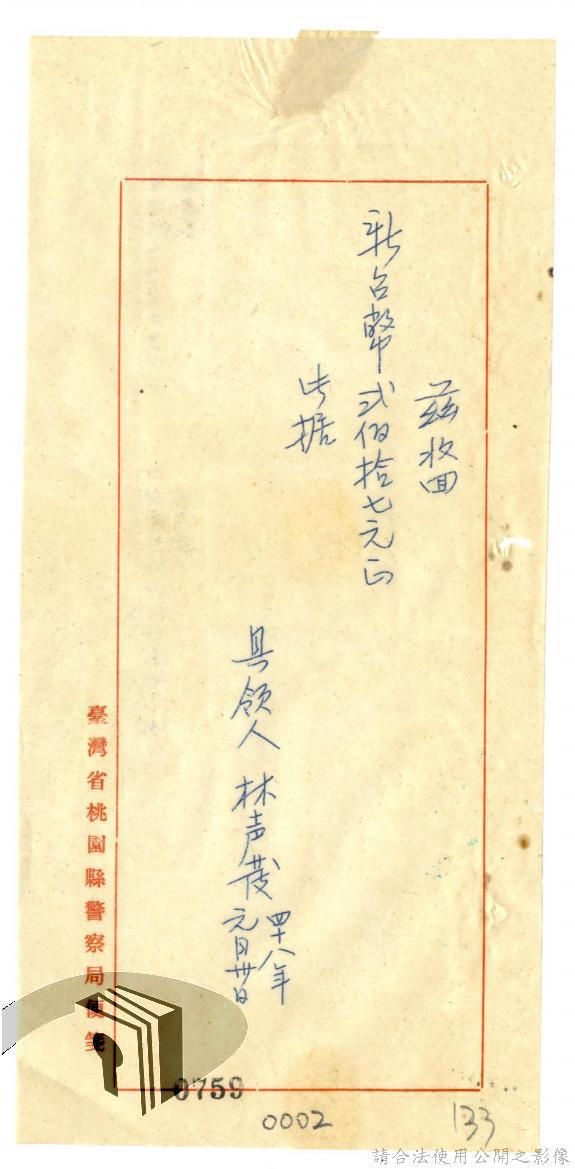 茲收回
新台幣弍佰拾七元正
此據
具領人 林声茂
四十八年
元月卅日
臺灣省桃園縣警察局便箋
0759
0002
133
請合法使用公開之影像